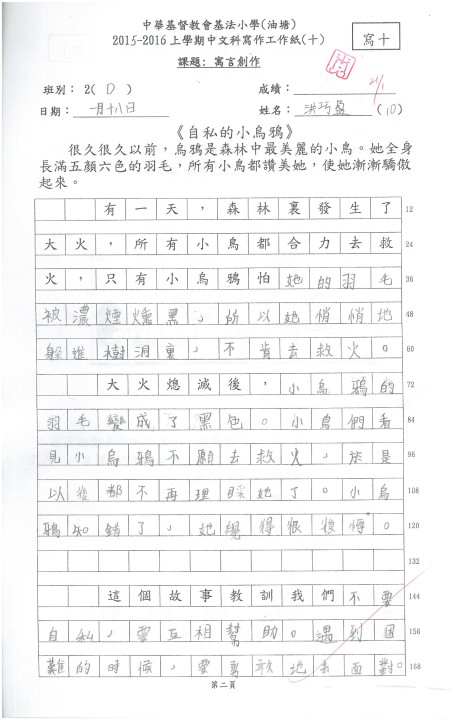 中華基督教會基法小學(油塘)
2015-2016上學期中文科寫作工作紙(十)
寫十
課題: 寓言創作
閱
班別: 2( D )
成績:
21/1
日期: 一月十八日
姓名: 洪巧盈 (10)
《自私的小烏鴉》
很久很久以前，烏鴉是森林中最美麗的小鳥。她全身
長滿五顏六色的羽毛，所有小鳥都讚美她，使她漸漸驕傲
起來。
有一天，森林裏發生了 12
大火，所有小鳥都合力去救 24
火，只有小烏鴉怕她的羽毛 36
被濃煙燻黑，所以她悄悄地 48
躲進樹洞裏，不肯去救火。 60
大火熄滅後，小烏鴉的 72
羽毛變成了黑色。小鳥們看 84
見小烏鴉不願去救火，於是 96
以後都不再理睬她了。小烏 108
鴉知錯了，她覺得很後悔。 120
132
這個故事教訓我們不要 144
自私，要互相幫助。遇到困 156
難的時候，要勇敢地去面對。 168
第二頁